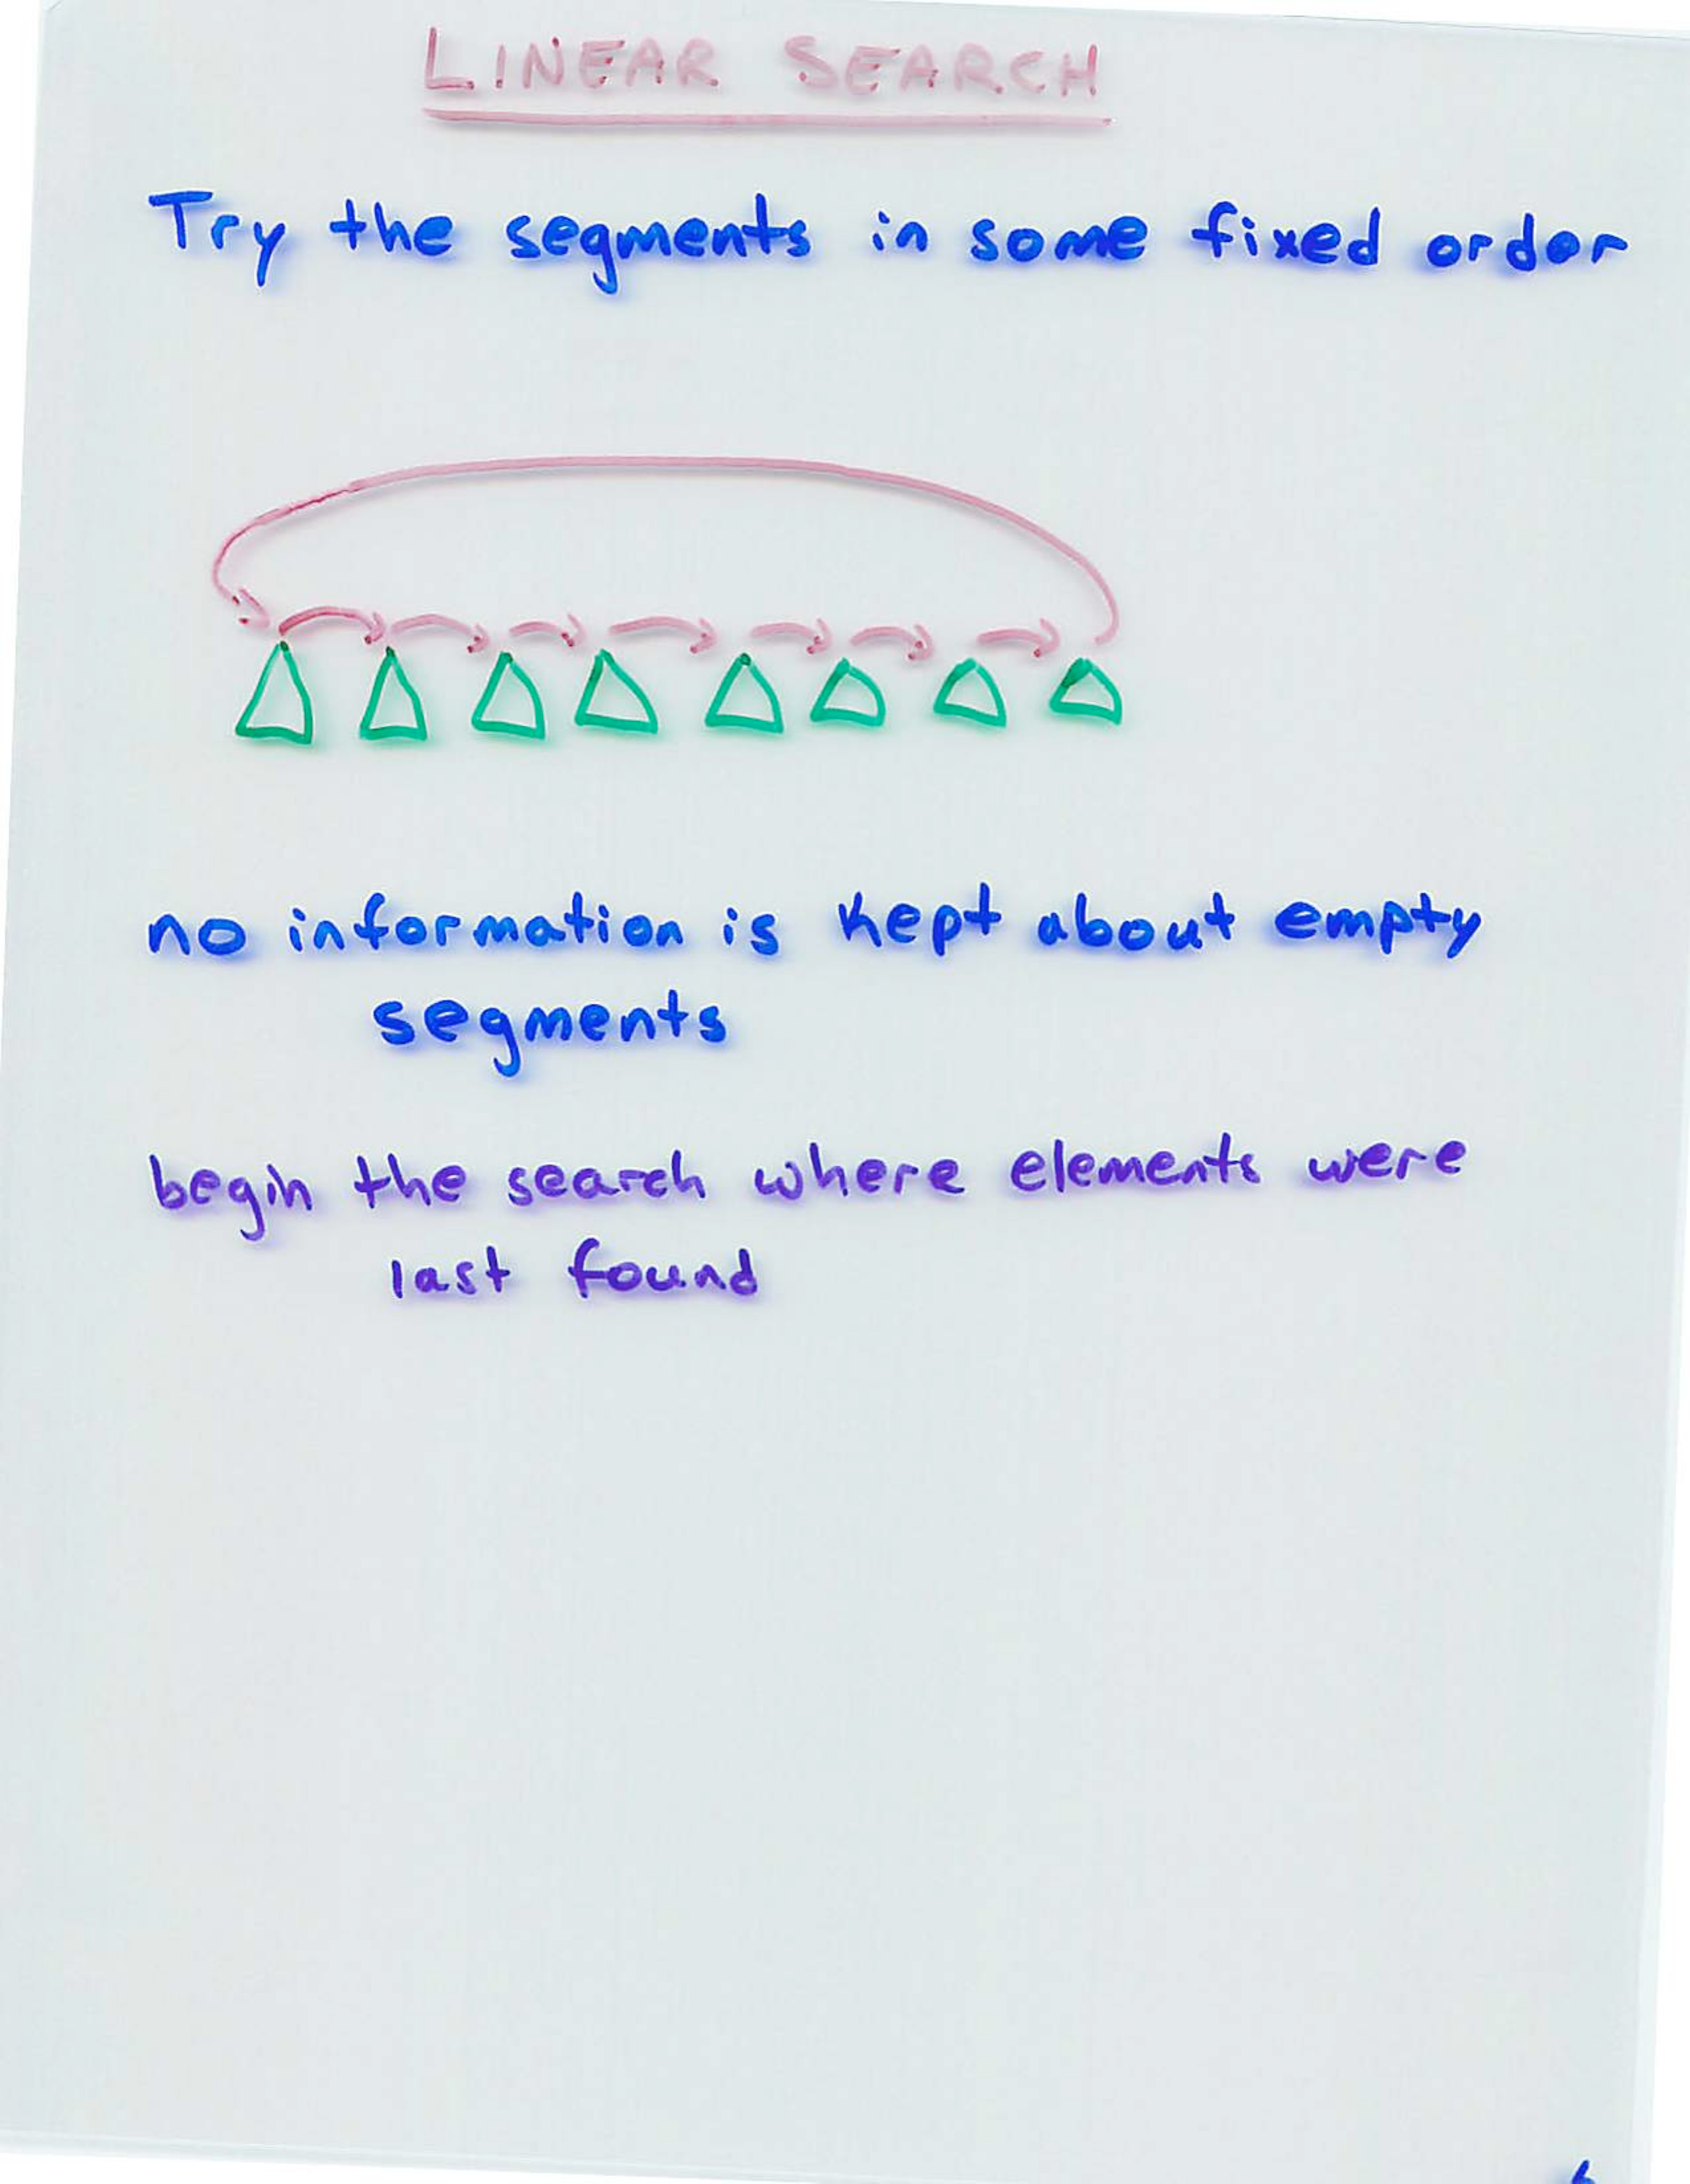 LINEAR SEARCH
Try the segments in some fixed order
no information is kept about empty
segments
begin the search where elements were
last found